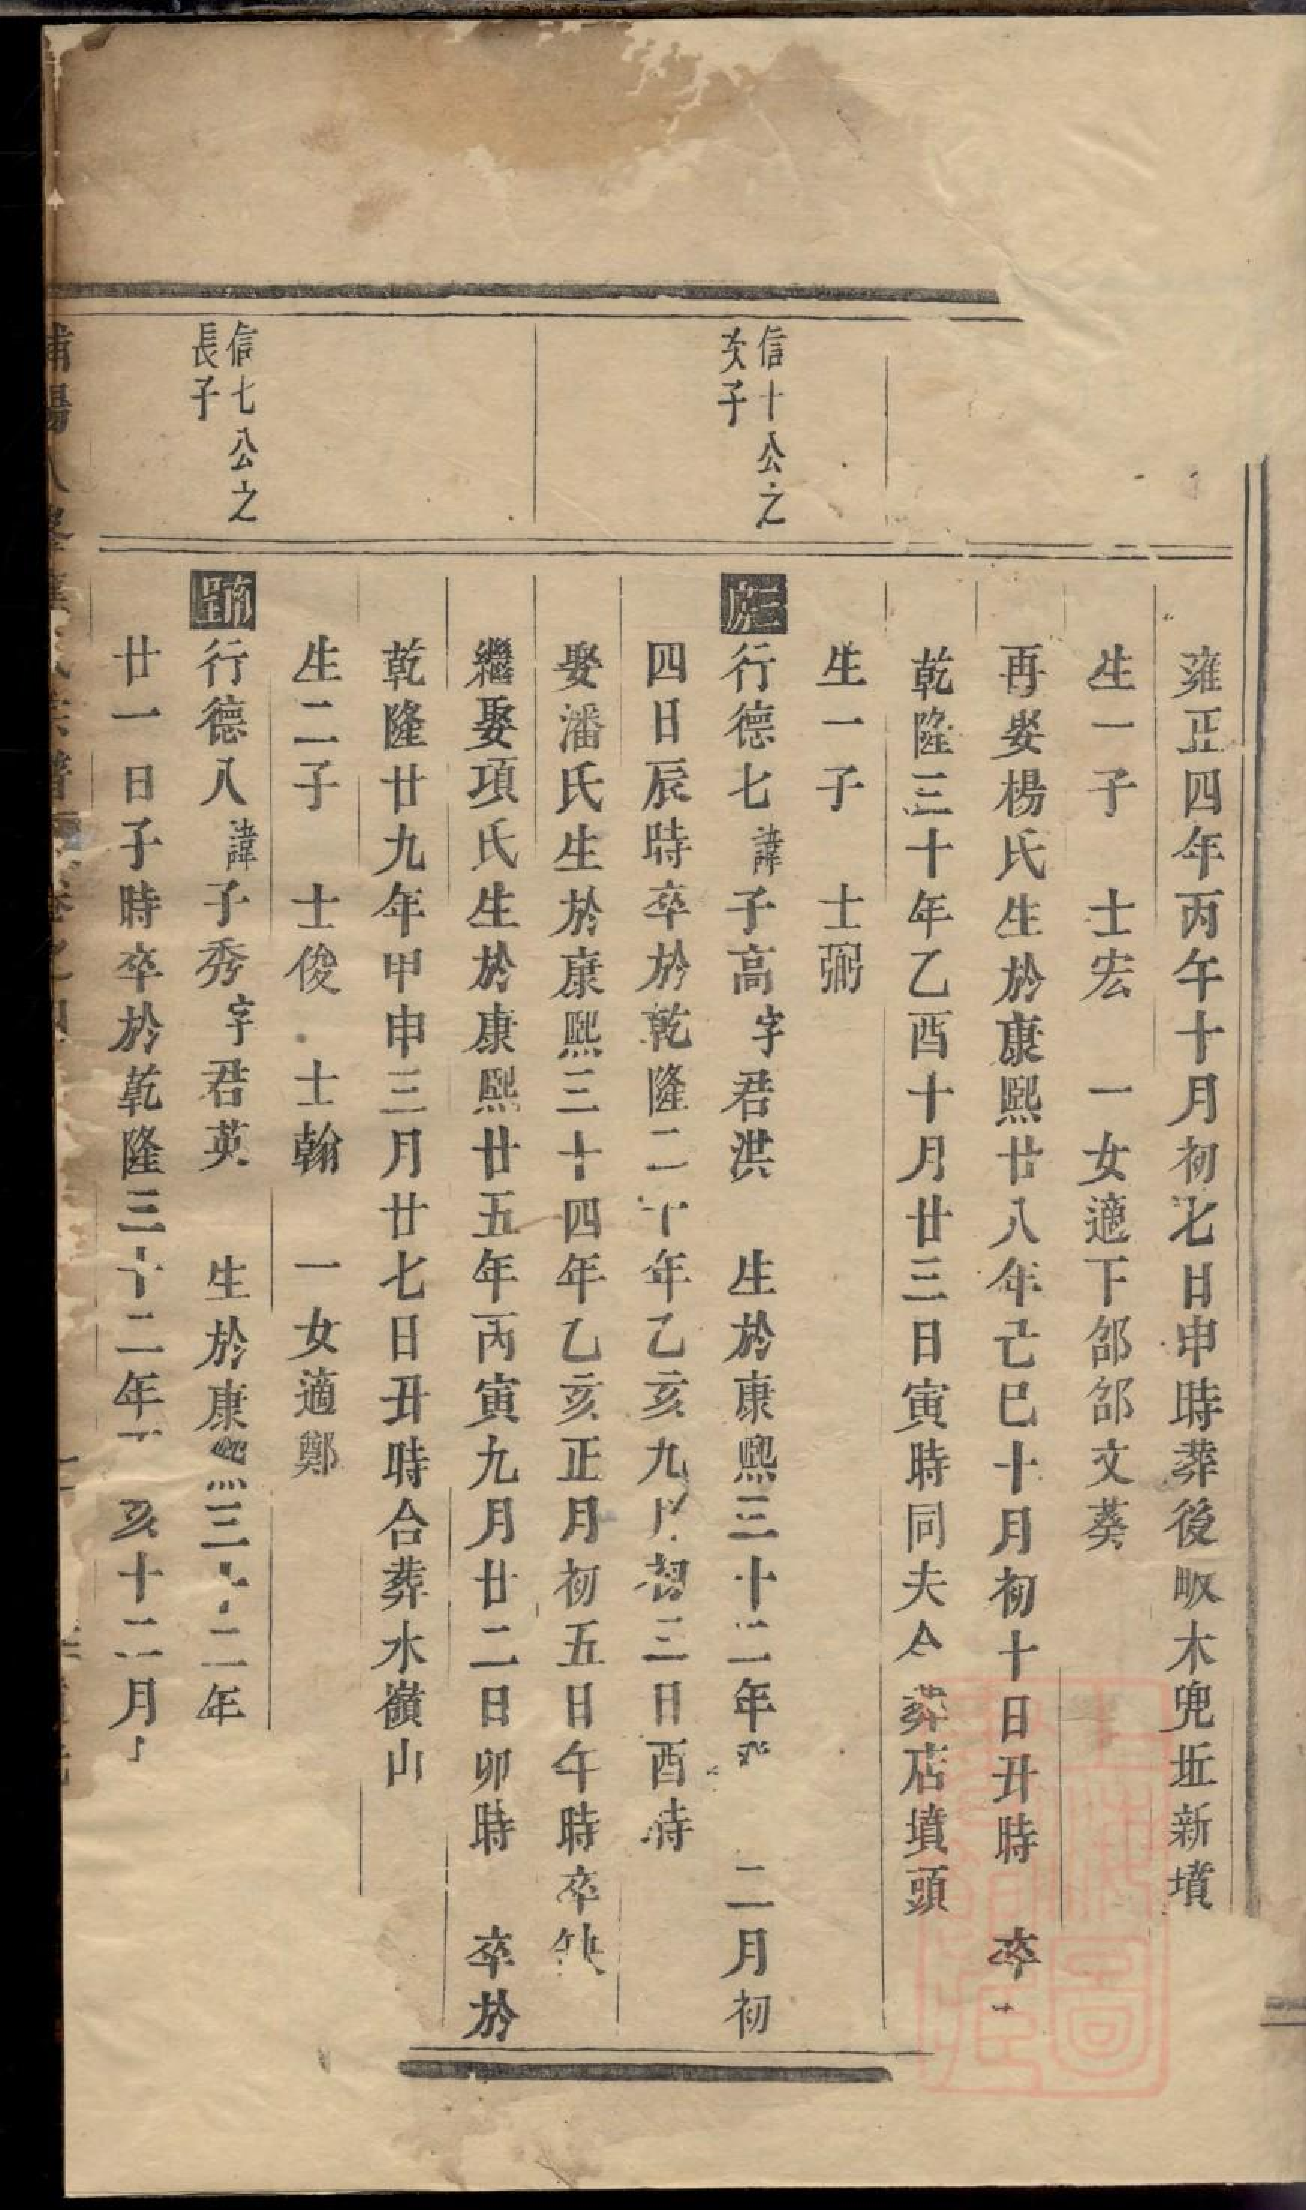 雍正四年丙午十月初七日申時葬後畈木兜坵新墳
生一子　士宏　一女適下邵邵文葵
再娶楊氏生於康熙廿八年己巳十月初十日丑時　卒
乾隆三十年乙酉十月廿三日寅時同夫合葬店墳頭
生一子　士弼
信十公之
次子
行德七諱子高字君洪　生於康熙三十二年　二月初
四日辰時卒於乾隆二十年乙亥九月初三日酉時
娶潘氏生於康熙三十四年乙亥正月初五日午時卒缺
繼娶項氏生於康熙廿五年丙寅九月廿二日卯時　卒於
乾隆廿九年甲申三月廿七日丑時合葬水嶺山
生二子　士俊　士翰　一女適鄭
信七公之
長子
行德八諱子秀字君英　生於康熙三十二年
廿一日子時卒於乾隆三十二年　亥十二月